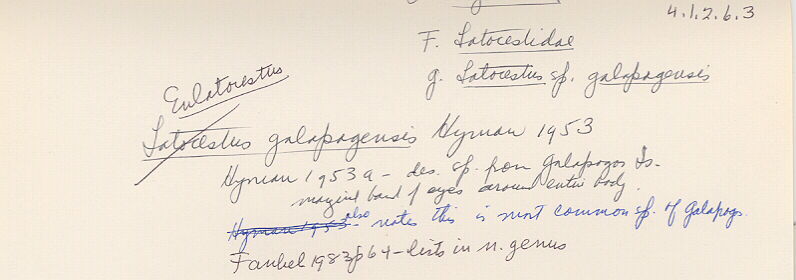 4.1.2.6.3
F. Latocestidae
g. Latocestus sp. galapagensis
Eulatocestus
Latocestus galapagensis Hyman 1953
Hyman 1953a - des. sp. from Galapagos Is.
marginal band of eyes around entire body.
Hyman 1953 also - notes this is most common sp. of Galapags.
Faubel 1983 p64 - lists in n. genus